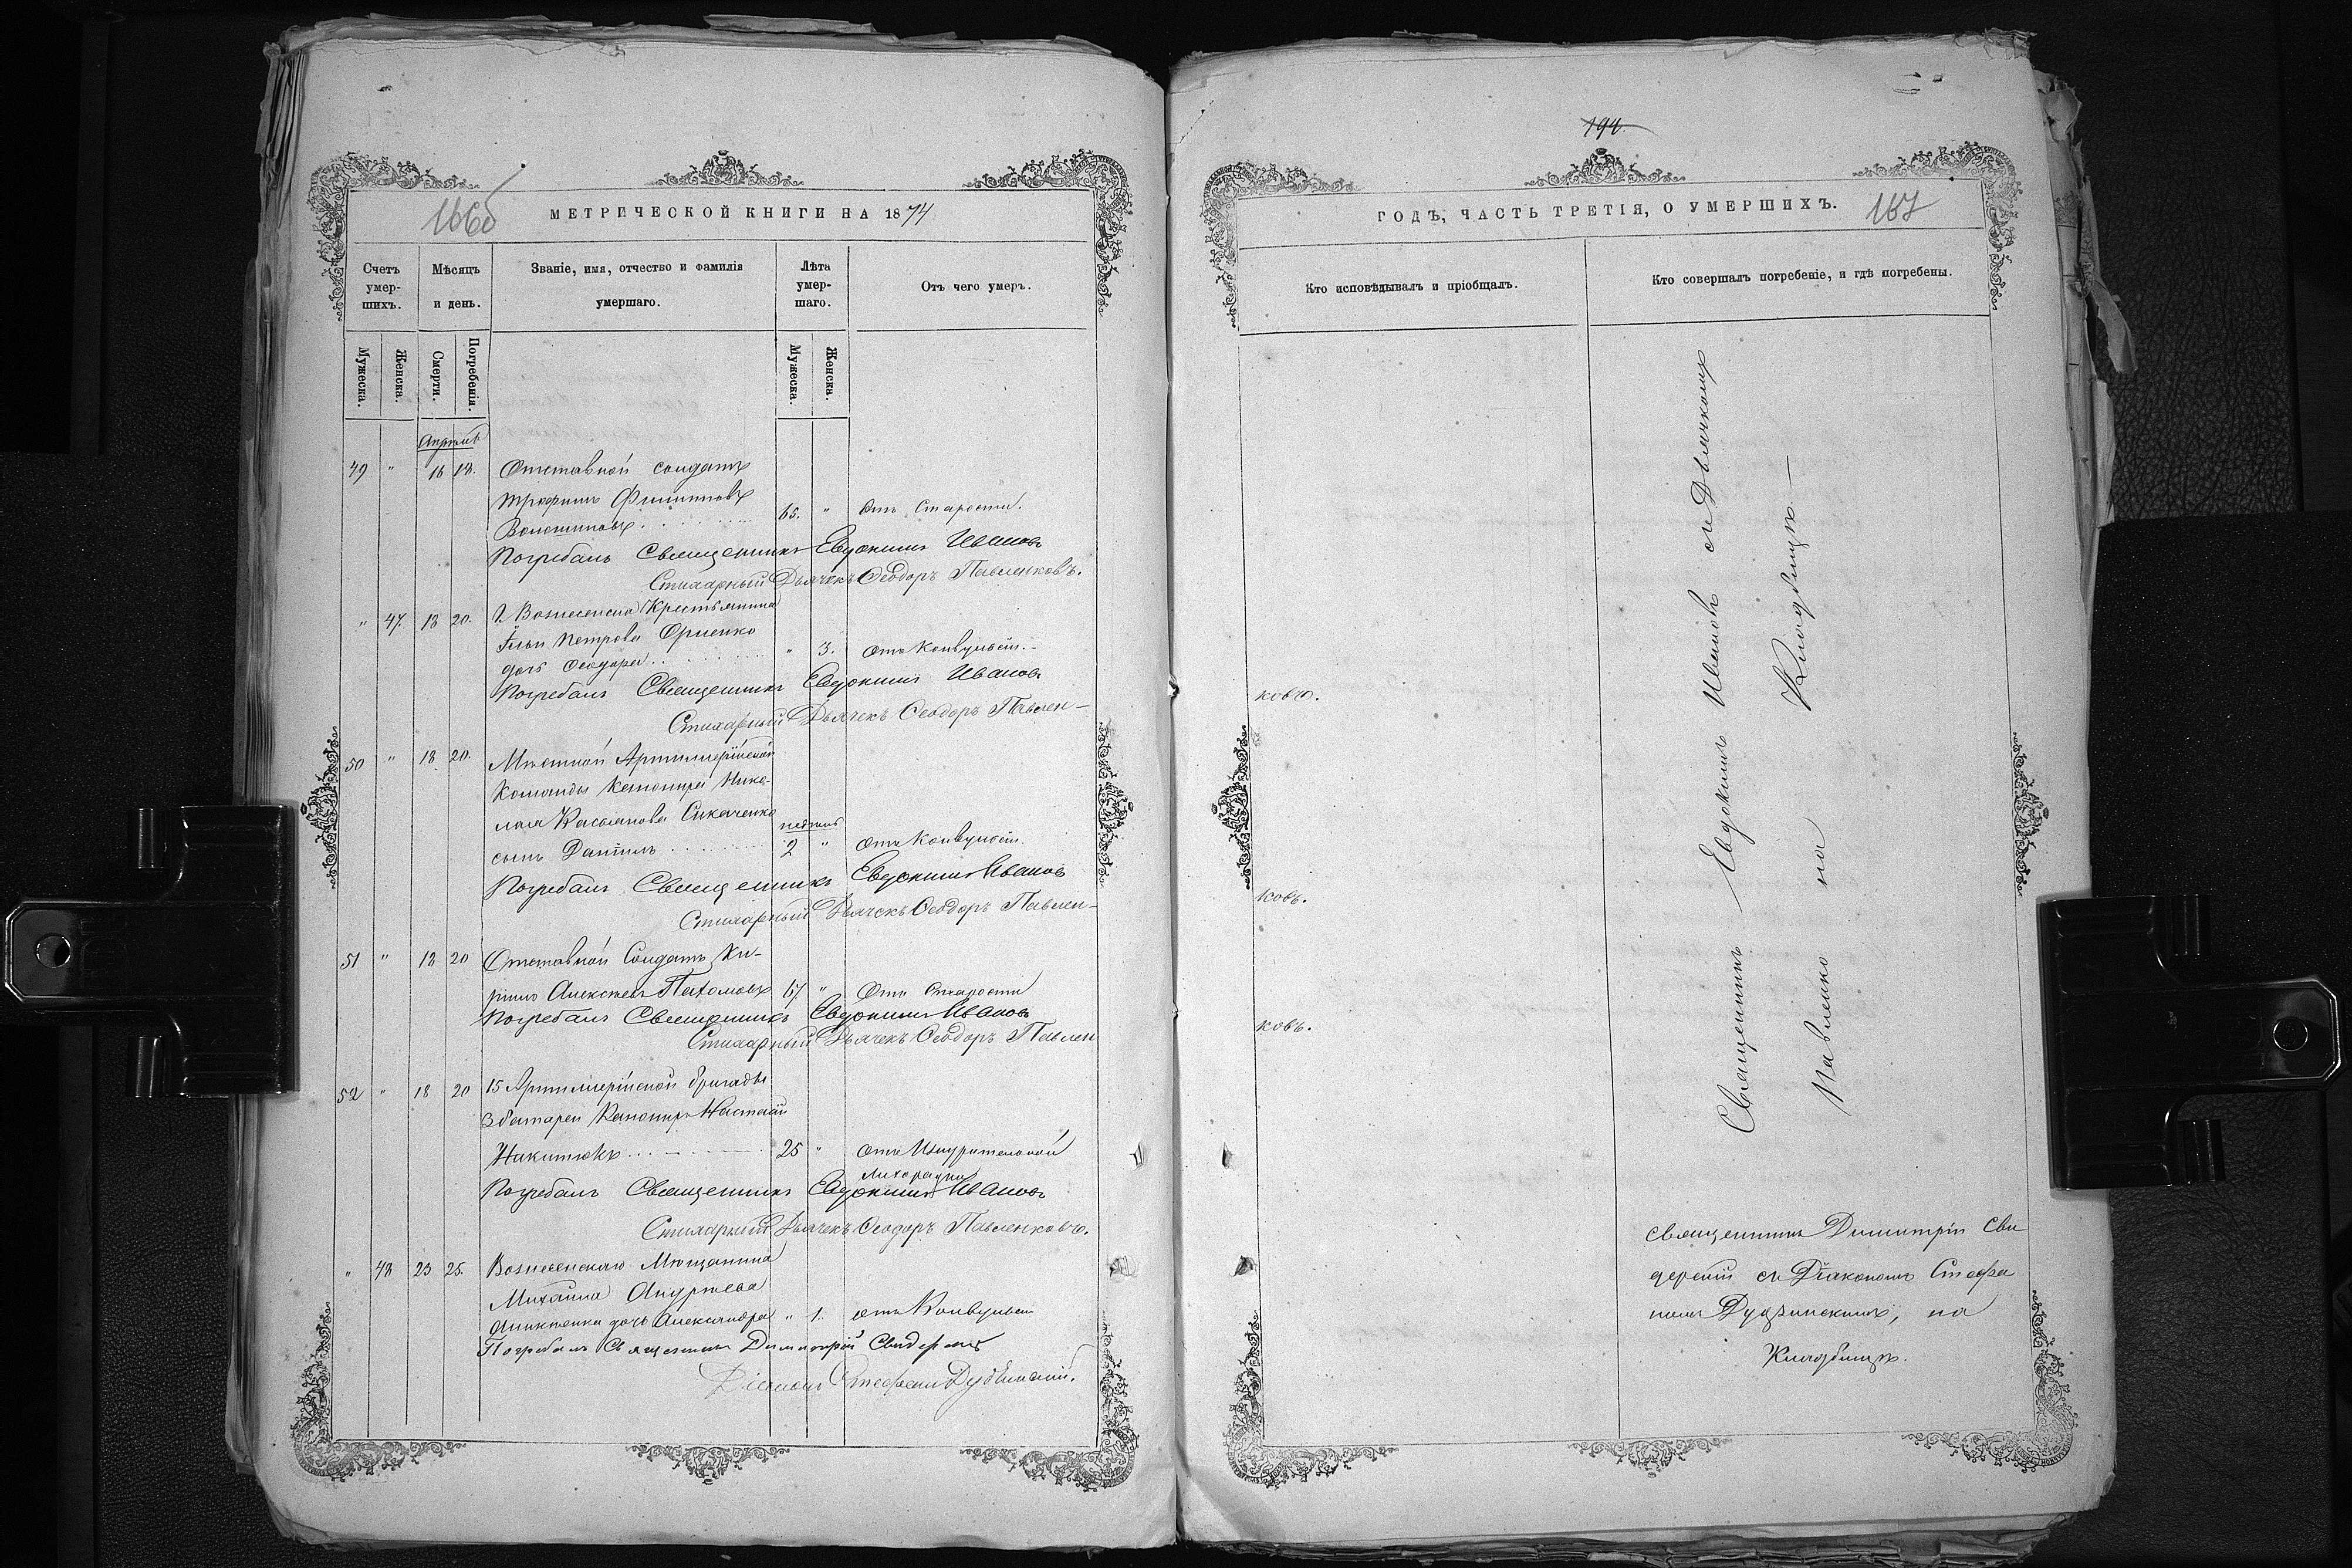 166б
МЕТРИЧЕСКОЙ КНИГИ НА 1874
Счетъ умер-шихъ.
Мѣсяцъ и день.
Званіе, имя, отчество и фамилія умершаго.
Лѣта умер-шаго.
Отъ чего умеръ.
Мужеска.
Женска.
Смерти.
Погребенія.
Мужеска.
Женска.
Апрѣль
49 " 16 18. Отставной солдатъ
Трофимъ Филиповъ
Волошиновъ 65. " Отъ Старости.
Погребалъ Священникъ Евдокимъ Ивановъ
Стихарный Дьячекъ Ѳеодоръ Павленковъ.
" 47. 18 20. Г. Вознесенска Крестьянина
Ильи Петрова
дочь Ѳеодора " 3. Отъ Конвульсій.
Погребалъ Священникъ Евдокимъ Ивановъ
Стихарный Дьячекъ Ѳеодоръ Павлен-
50 " 18 20. Мѣстной Артиллерійской
Команды Канонира Нико-
лая Касьянова Сикаченко
сынъ Даніилъ недѣль 2 " Отъ Конвульсій.
Погребалъ Священникъ Евдокимъ Ивановъ
Стихарный Дьячекъ Ѳеодоръ Павлен-
51 " 18 20 Отставной Солдатъ Ки-
рилъ Алексѣевъ Пахомовъ 67. " Отъ Старости
Погребалъ Священникъ Евдокимъ Ивановъ
Стихарный Дьячекъ Ѳеодоръ Павлен
52 " 18 20 15 Артиллерійской бригады
3 батареи Канониръ
Никитюкъ 25 " Отъ Изнурительной
Лихорадки
Погребалъ Священникъ Евдокимъ Ивановъ
Стихарный Дьячекъ Ѳеодоръ Павленковъ.
" 48 23 25. Вознесенскаго Мѣщанина
Михаила Андреева
дочь Александра " 1. отъ Конвульсій
Погребалъ Священникъ Димитрій Свидерскій
Діаконъ Стефанъ Дудзинскій.
194.
ГОДЪ, ЧАСТЬ ТРЕТІЯ, О УМЕРШИХЪ.
167
Кто исповѣдывалъ и пріобщалъ.
Кто совершалъ погребеніе, и гдѣ погребены.
ковъ.
ковъ.
ковъ.
Священникъ Евдокимъ Ивановъ съ Дьячкомъ
Павленко на Кладбищѣ —
Священникъ Димитрій Сви
дерскій съ Діакономъ Стефа
номъ Дудзинскимъ, на
Кладбищѣ.